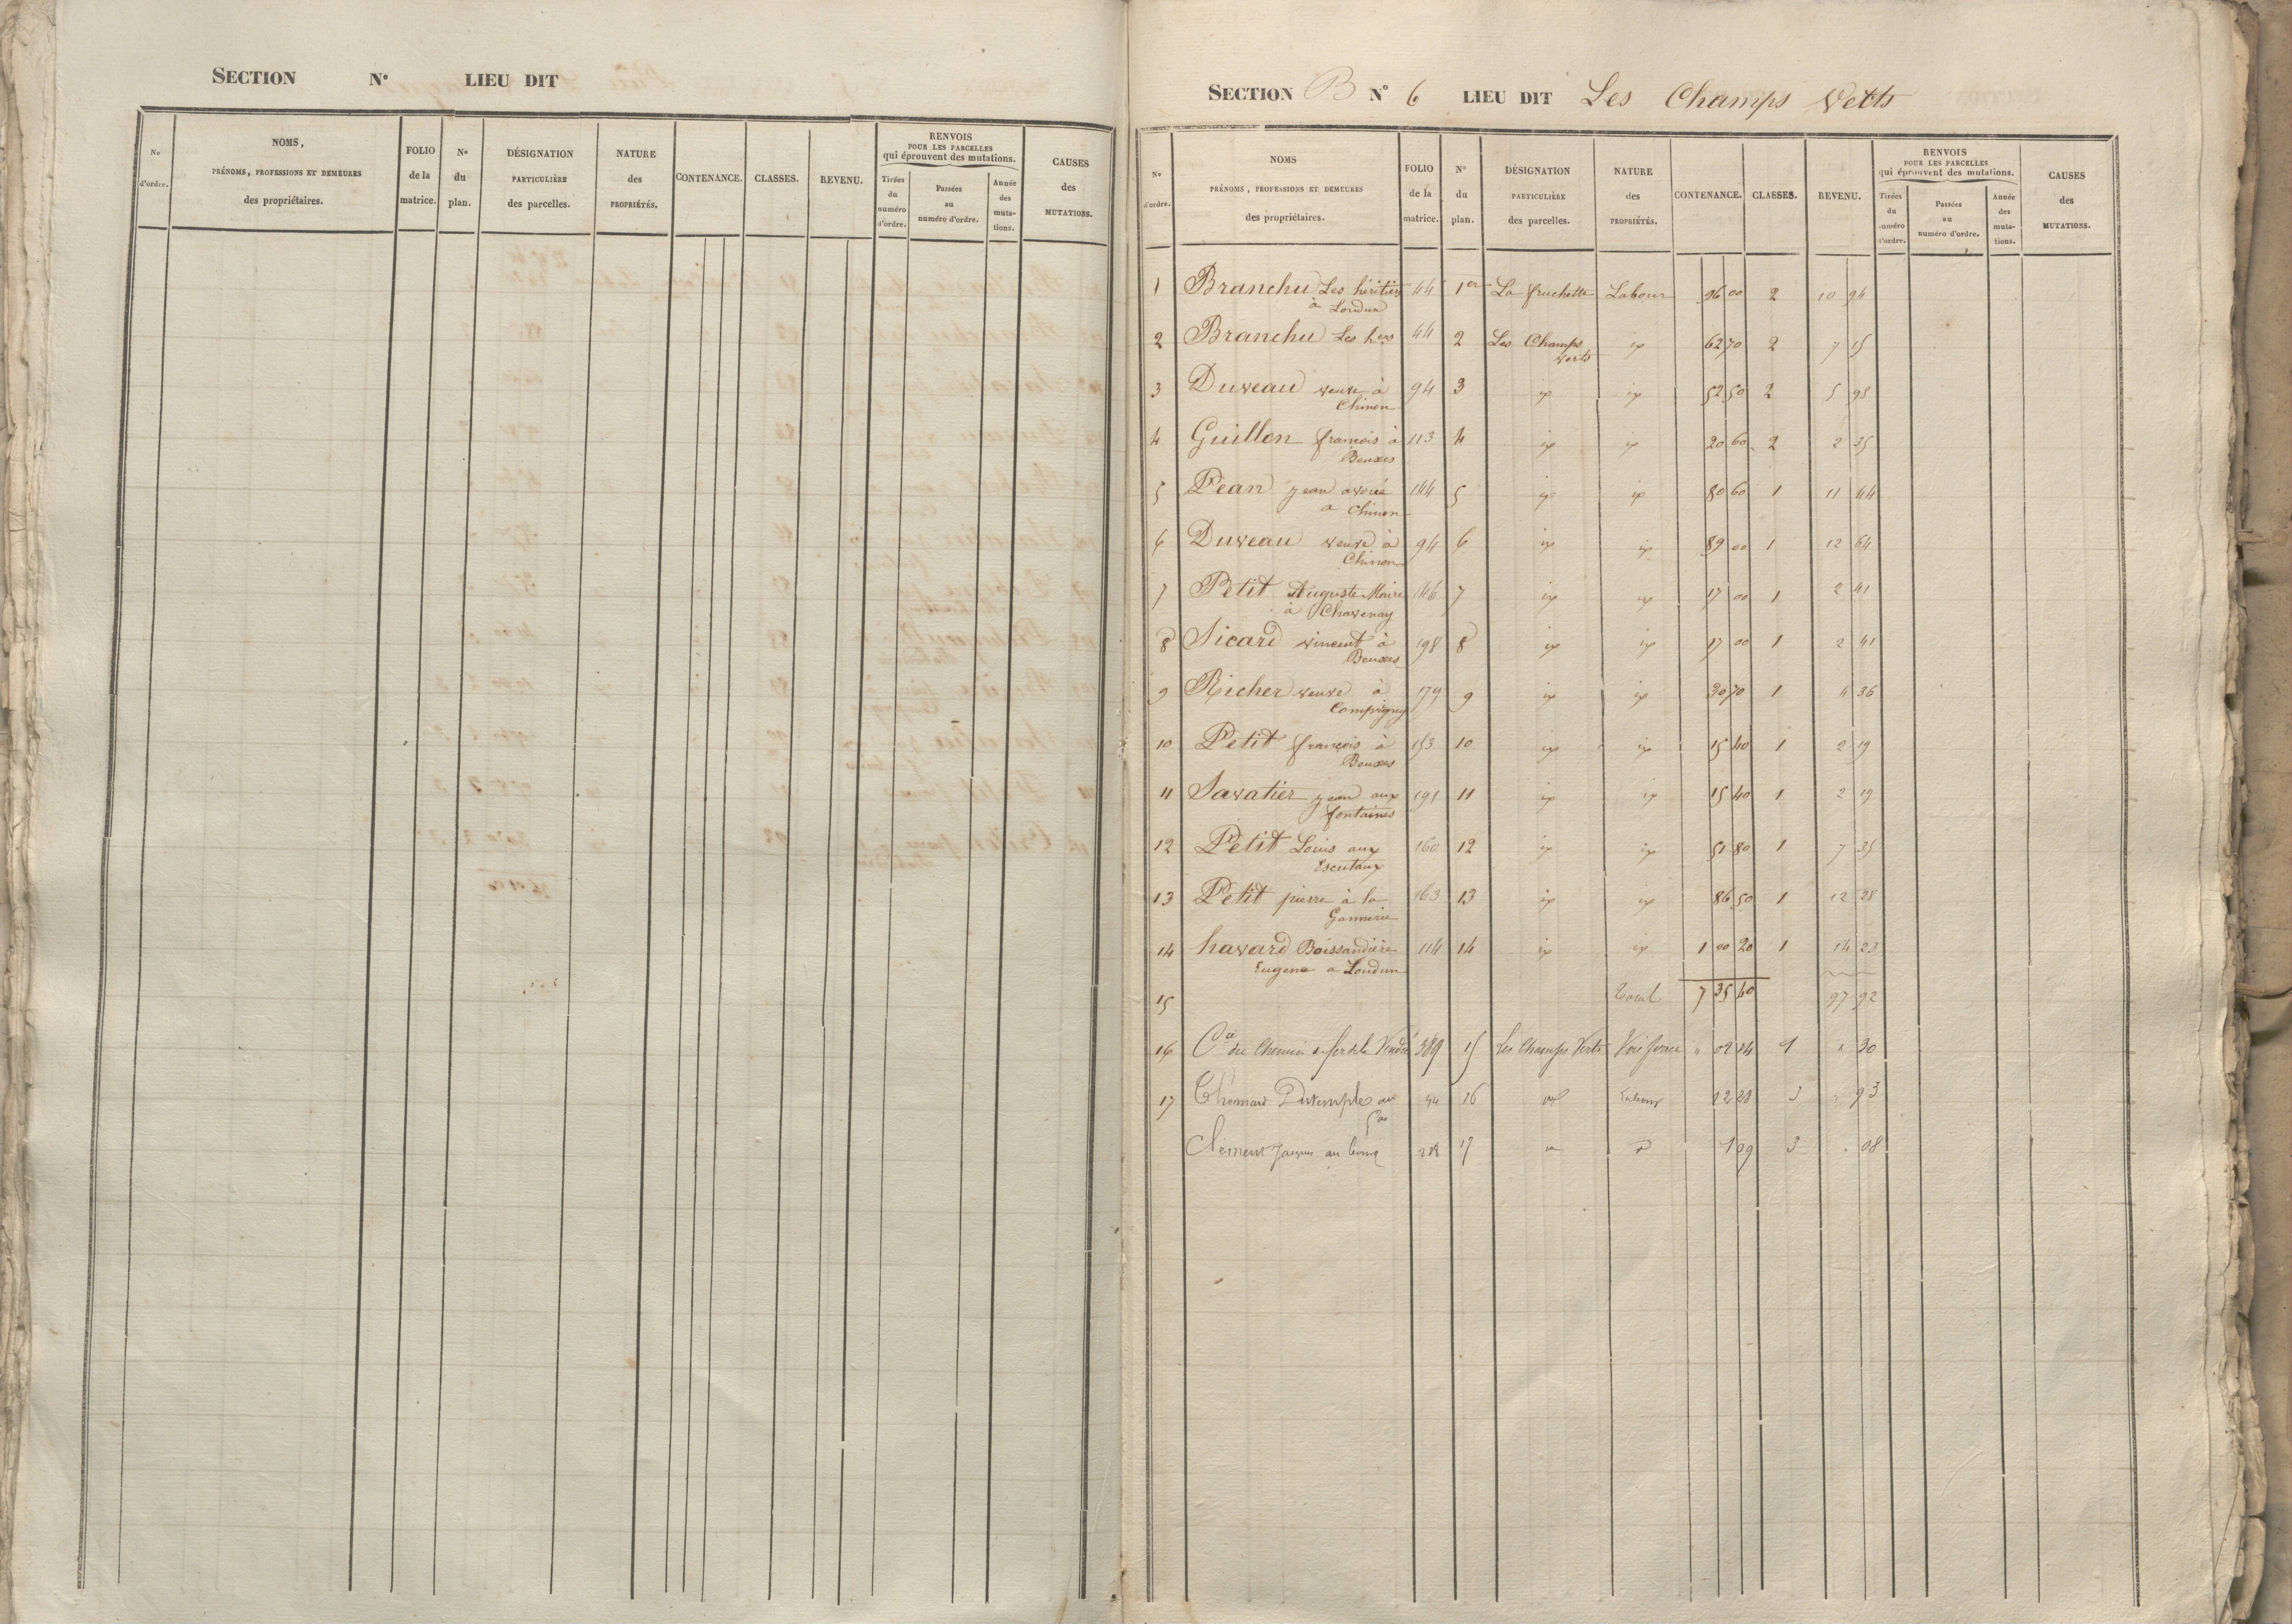 SECTION N° LIEU DIT
No d'ordre.
NOMS,
PRÉNOMS, PROFESSIONS ET DEMEURES
des propriétaires.
FOLIO de la matrice.
N° du plan.
DÉSIGNATION
PARTICULIÈRE
des parcelles.
NATURE des PROPRIÉTÉS.
CONTENANCE.
CLASSES.
REVENU.
RENVOIS
POUR LES PARCELLES
qui éprouvent des mutations.
Tirées du numéro d'ordre.
Passées au numéro d'ordre.
Année des muta-tions.
CAUSES des MUTATIONS.
SECTION B N° 6 LIEU DIT Les Champs Verts
No d'ordre.
NOMS
PRÉNOMS, PROFESSIONS ET DEMEURES
des propriétaires.
FOLIO de la matrice.
N° du plan.
DÉSIGNATION
PARTICULIÈRE
des parcelles.
NATURE des PROPRIÉTÉS.
CONTENANCE.
CLASSES.
REVENU.
RENVOIS
POUR LES PARCELLES
qui éprouvent des mutations.
Tirées du numéro d'ordre.
Passées au numéro d'ordre.
Année des muta-tions.
CAUSES des MUTATIONS.
1 Branchu Les héritiers 44 1er La fruchette Labour 96 00 2 10 94
à Loudun
2 Branchu Les hers 44 2 Les Champs 62 70 2 7 15
verts
3 Duveau veuve à 94 3 52 50 2 5 98
Chinon
4 Guillon françois à 113 4 20 60 2 2 35
Beuxes
5 Péan jean avoué 144 5 80 60 1 11 44
a Chinon
6 Duveau veuve à 94 6 89 00 1 12 64
Chinon
7 Petit Auguste Maire 146 7 17 00 1 2 41
à Chavenay
8 Sicard vincent à 198 8 17 00 1 2 41
Beuxes
9 Richer veuve à 179 9 30 70 1 4 36
Compigny
10 Petit françois à 153 10 15 40 1 2 19
Beuxes
11 Savatier jean aux 191 11 15 40 1 2 19
fontaines
12 Petit Louis aux 160 12 51 80 1 7 35
Escutaux
13 Petit pierre à la 163 13 86 50 1 12 28
Gannerie
14 havard Boissaudière 114 14 1 00 20 1 14 23
Eugene a Loudun
15 Total 7 35 40 97 92
16 Cie du Chemin de fer de la Vendée 389 15 Les Champs Verts Voie ferrée 02 14 1 30
17 Thomas Dutemple au 16 Labour 12 28 3 93
Clément Jacques au bourg 17 1 09 3 08